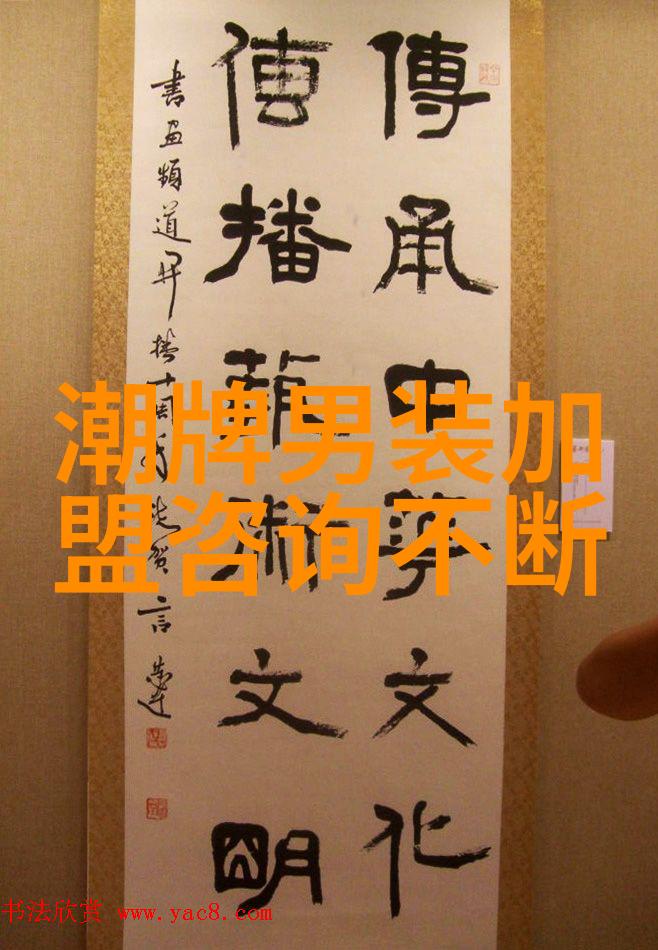 傳承中華文化
傳播藝術文明
書画頻道
潮牌男装加
盟咨询不断
书法欣赏 www.yac8.com